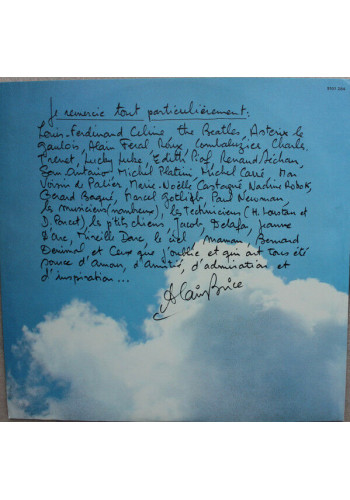 3101 204
Je remercie tout particulièrement:
Louis-Ferdinand Céline, the Beatles, Asterix le
gaulois, Alain Féral, Roux Combaluzier, Charles
Trenet, Lucky Luke, Edith Piaf, Renaud Séchan,
San Antonio, Michel Platini, Michel Carré, Mon
Voisin de Palier, Marie-Noëlle Castagné, Nadine
Gérard Bosqué, Marcel Gotlieb, Paul Newman,
les musiciens (nombreux), les Techniciens (H. Houston et
D. Poncet) les p'tits chiens, Jacob Delafon, Jeanne
d'Arc, Mireille Darc, le ciel, Maman, Bernard
et Ceux que j'oublie et qui ont tous été
source d'amour, d'amitié, d'admiration et
d'inspiration...
Alain Brice